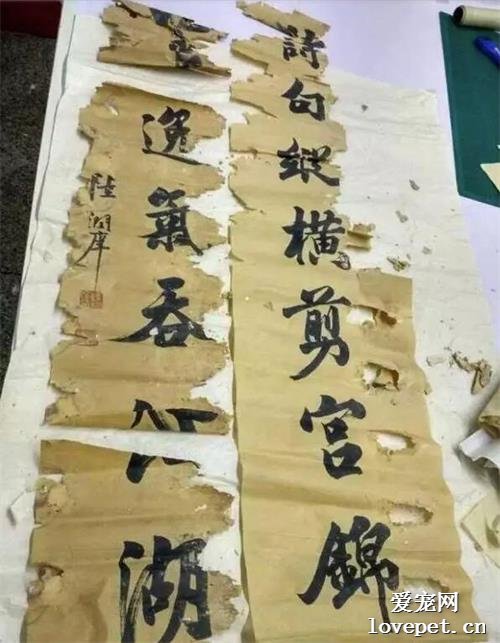 詩句縱橫剪宮錦
逸氣吞江湖
陸潤庠
爱宠网
lovepet.cn